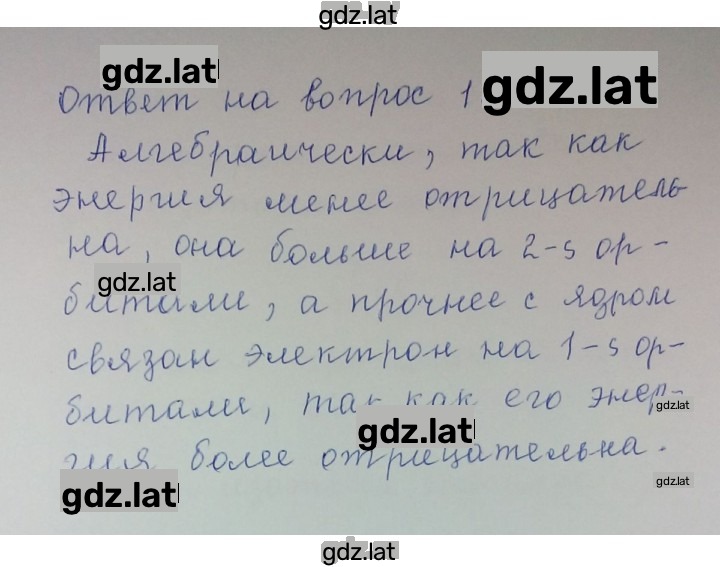 gdz.lat
gdz.lat
Ответ на вопрос 1
gdz.lat
Алгебраически, так как
энергия менее отрицатель-
на, она больше на 2-s ор-
gdz.lat
битали, а прочнее с ядром
связан электрон на 1-s ор-
битали, так как его энер-
gdz.lat
gdz.lat
гия более отрицательна.
gdz.lat
gdz.lat
gdz.lat